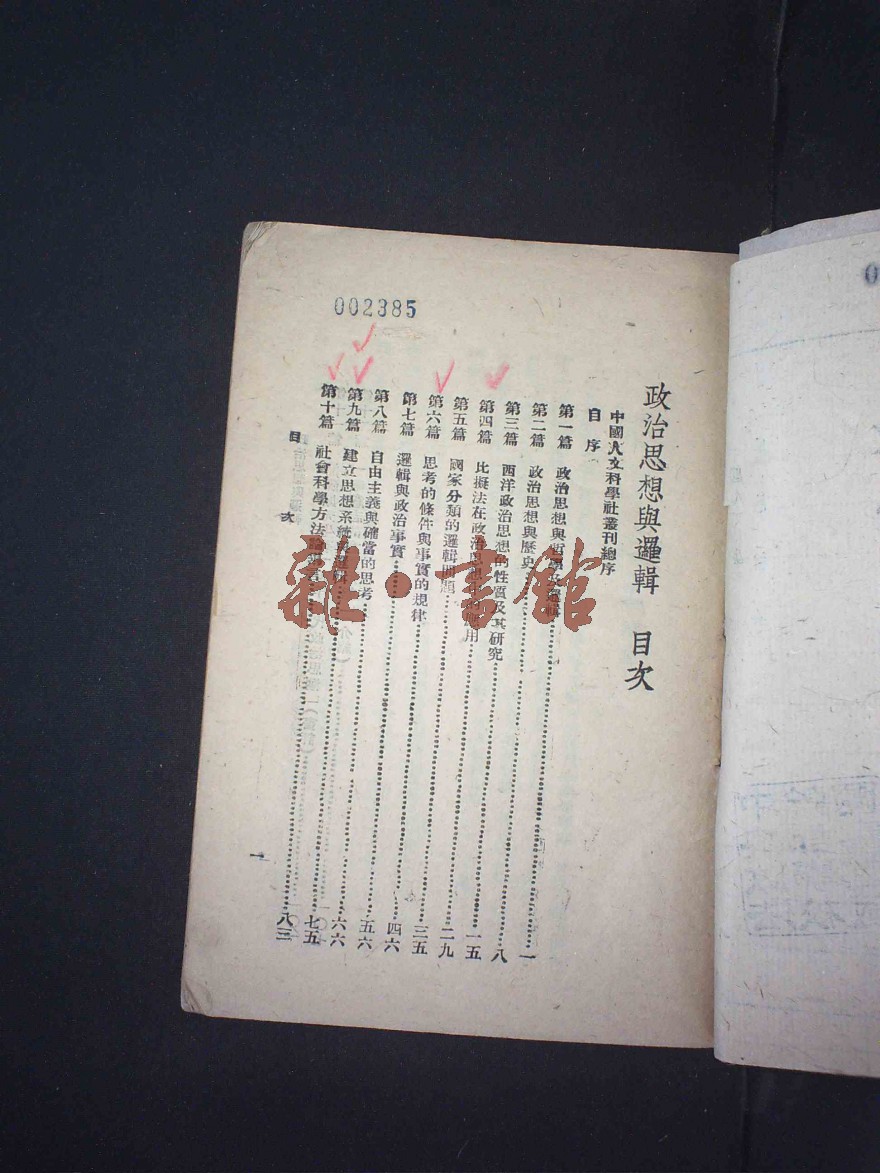 002385
政治思想與邏輯 目次
中國人文科學社叢刊總序
自序
第一篇 政治思想與哲學及邏輯……一
第二篇 政治思想與歷史……八
第三篇 西洋政治思想的性質及其研究……一五
第四篇 比擬法在政治思想上的應用……二九
第五篇 國家分類的邏輯問題……三五
第六篇 思考的條件與事實的規律……四六
第七篇 邏輯與政治事實……五六
第八篇 自由主義與確當的思考……六六
第九篇 建立思想系統 邏輯……七五
第十篇 社會科學方法論……八三
目次
一
雜·書館